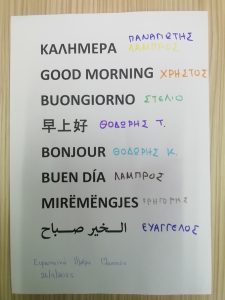 ΠΑΝΑΓΙΩΤΗΣ
ΚΑΛΗΜΕΡΑ ΛΑΜΠΡΟΣ
GOOD MORNING ΧΡΗΣΤΟΣ
BUONGIORNO ΣΤΕΛΙΟ
早上好 ΘΟΔΩΡΗΣ Τ.
BONJOUR ΘΟΔΩΡΗΣ Κ.
BUEN DÍA ΛΑΜΠΡΟΣ
MIRËMËNGJES ΓΡΗΓΟΡΗΣ
الـخير صباح ΕΥΑΓΓΕΛΟΣ
Ευρωπαϊκή Ημέρα Γλωσσών